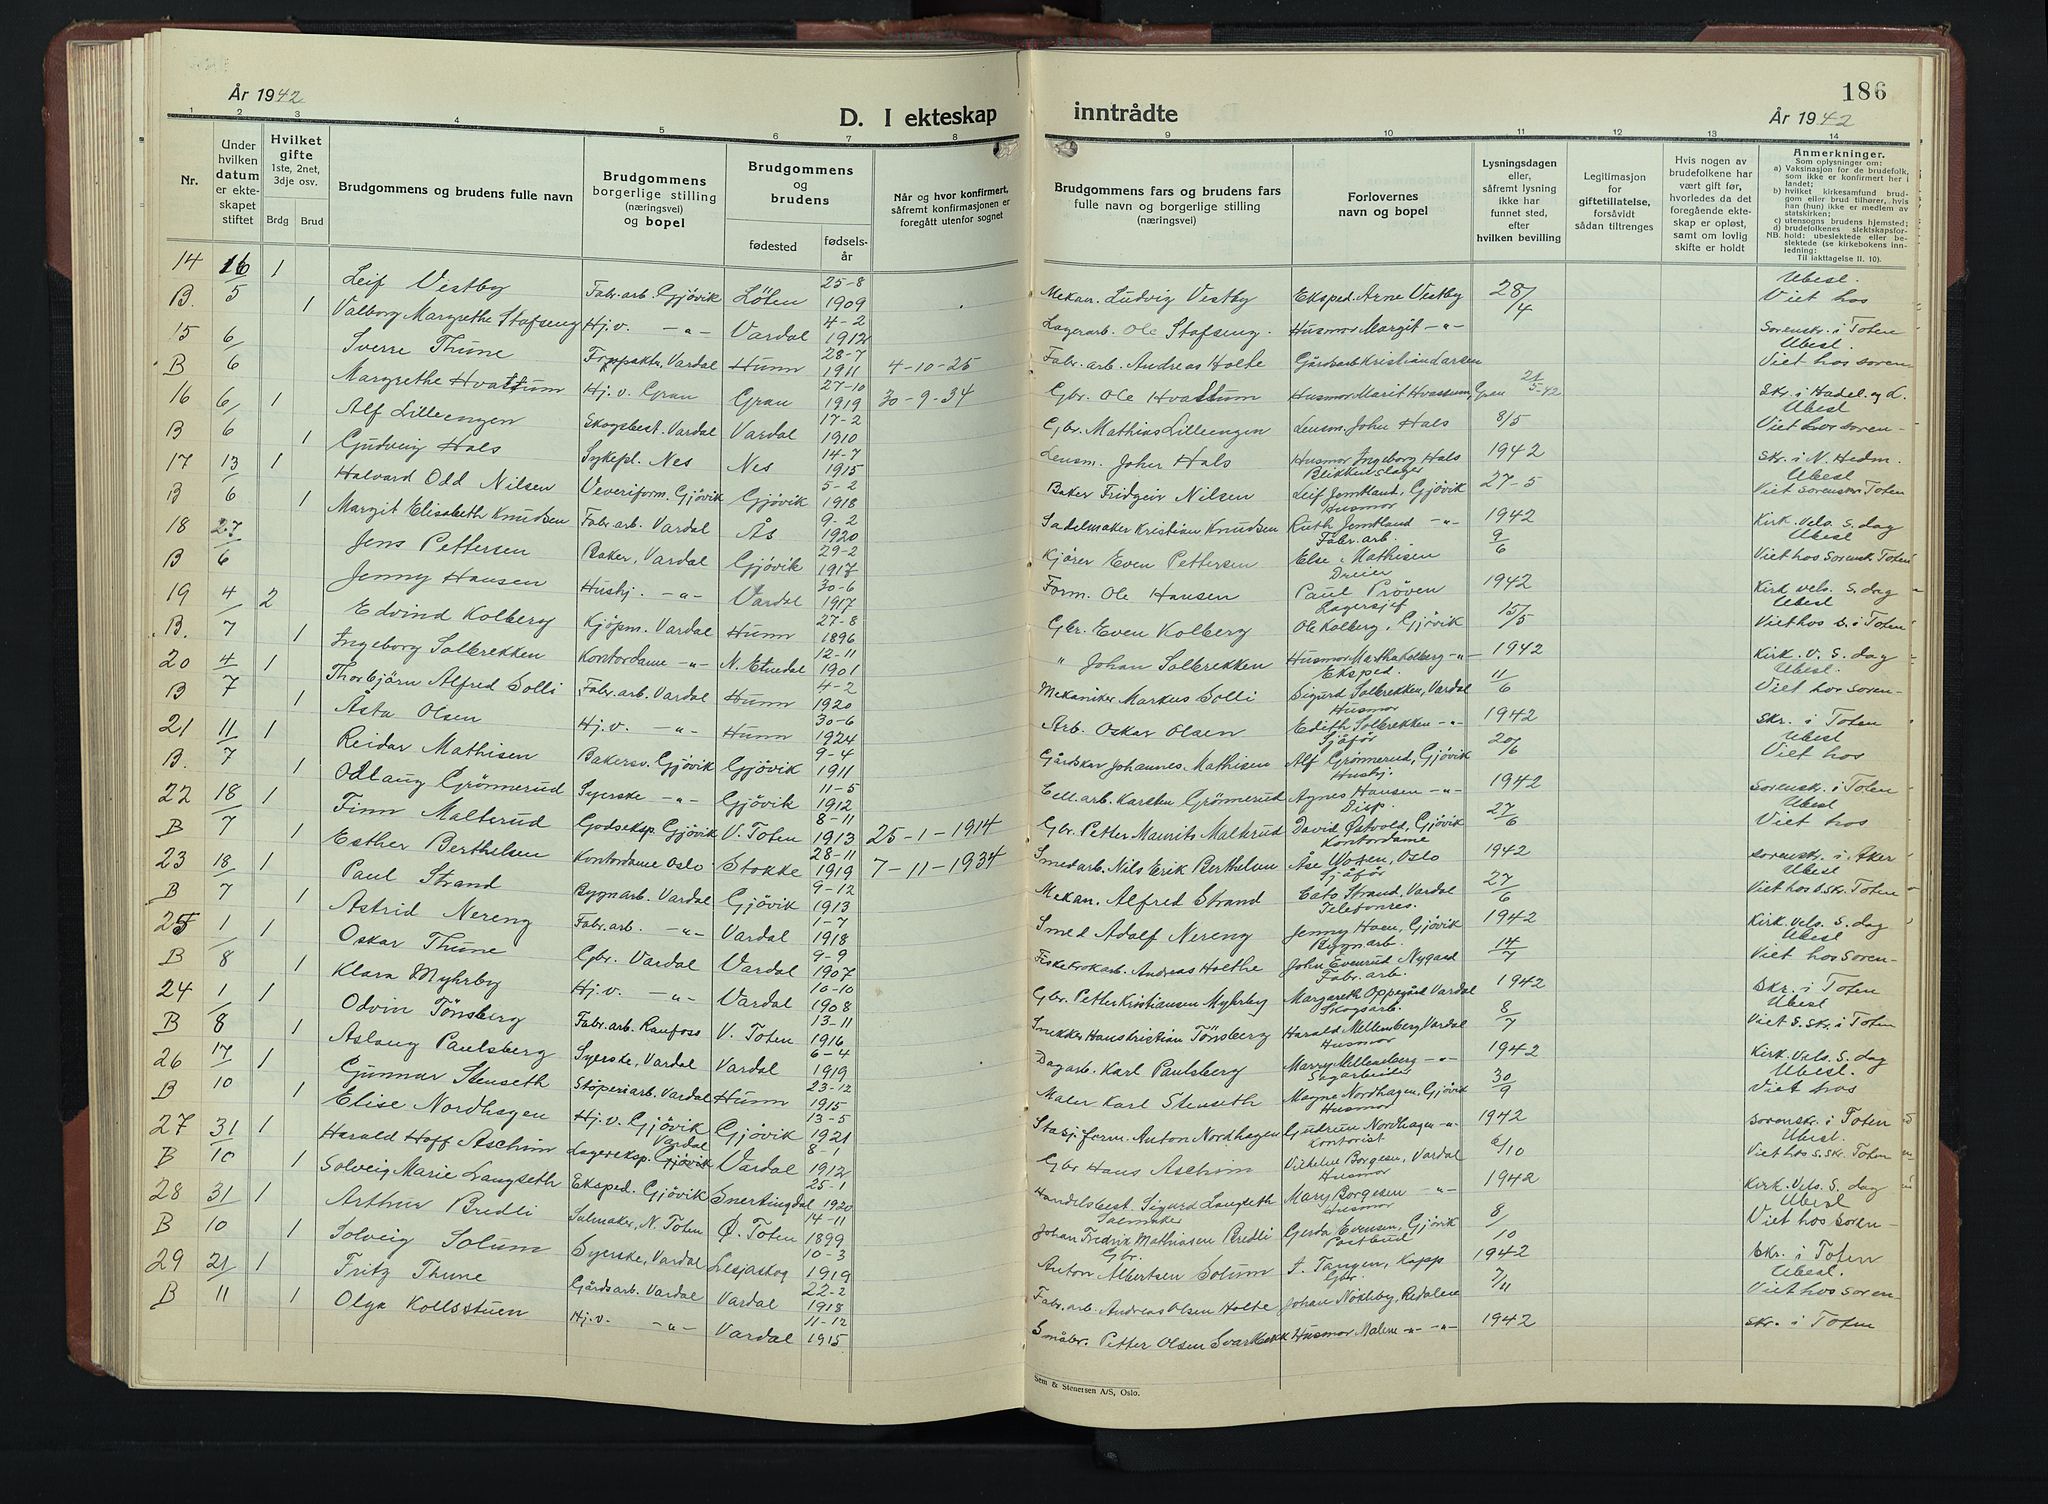 186
År 1942
D. I ekteskap inntrådte
År 1942
1 2 3 4 5 6 7 8 9 10 11 12 13 14
Nr.
Under hvilken datum er ekteskapet stiftet
Hvilket gifte
1ste, 2net, 3dje osv.
Brdg Brud
Brudgommens og brudens fulle navn
Brudgommens borgerlige stilling (næringsvei) og bopel
Brudgommens og brudens
fødested
fødselsår
Når og hvor konfirmert, såfremt konfirmasjonen er foregått utenfor sognet
Brudgommens fars og brudens fars fulle navn og borgerlige stilling (næringsvei)
Forlovernes navn og bopel
Lysningsdagen eller, såfremt lysning ikke har funnet sted, efter hvilken bevilling
Legitimasjon for giftetillatelse, forsåvidt sådan tiltrenges
Hvis nogen av brudefolkene har vært gift før, hvorledes da det foregående ekteskap er opløst, samt om lovlig skifte er holdt
Anmerkninger.
Som oplysninger om:
a) Vaksinasjon for de brudefolk, som ikke er konfirmert her i landet;
b) hvilket kirkesamfund brudgom eller brud tilhører, hvis han (hun) ikke er medlem av statskirken;
c) utensogns brudens hjemsted;
d) brudefolkenes slektskapsforhold: ubeslektede eller beslektede (se kirkebokens innledning:
NB. Til iakttagelse II. 10).
14 16/5 1 Leif Vestby Fabr.arb. Gjövik Löten 25-8 1909 Mekan. Ludvig Vestby Eksped. Arne Vestby 28/4 Ubesl. Viet hos
B. 1 Valborg Margrethe Stafseng Hj.v. -"- Vardal 4-2 1912 Lagerarb. Ole Stafseng. Husmor Margit -"- Sorenskr. i Toten
15 6/6 Sverre Thune Vardal Hunn 28-7 1911 4-10-25 Fabr. arb. Andreas Holte Ubesl. Viet hos soren
B Margrethe Hvattum Hj.v. Gran Gran 27-10 1919 30-9-34 Gbr. Ole Hvattum Husmor Marit Hvattum, Gran 21/5-42 skr. i Hadel. og L.
16 6/6 1 Alf Lilleengen Skogsbest. Vardal Vardal 17-2 1910 Gbr. Mathias Lilleengen Lensm. John Hals 8/5 Ubesl Viet hos soren-
B 1 Gudveig Hals Sykepl. Nes Nes 14-7 1915 Lensm. Johan Hals Husmor Ingeborg Hals 1942 skr. i N. Hedm.
17 13/6 1 Halvard Odd Nilsen Veveriform. Gjövik Gjövik 5-2 1918 Baker Fridgeir Nilsen Blikkenslager Leif Jemtland, Gjövik 27-5 Ubesl Viet sorenskr Toten
B 1 Margit Elisabeth Knudsen Fabr. arb. Vardal Ås 9-2 1920 Sadelmaker Kristian Knudsen Husmor Ruth Jemtland -"- 1942 Kirk. vels. S. dag
18 27/6 Jens Pettersen Baker, Vardal Gjövik 29-2 1917 Kjörer Even Pettersen Fabr. arb. Else Mathisen 9/6 Ubesl Viet hos Sorensk. Toten
B Jenny Hansen Hushj. -"- Vardal 30-6 1917 Form. Ole Hansen Dreier Paul Pröven 1942 Kirk vels. S. dag
19 4/7 2 Edvind Kolberg Kjöpm. Vardal Hunn 27-8 1896 Gbr. Even Kolberg Lagersjef Ole Kolberg, Gjövik 15/5 Ubesl Viet hos S. i Toten
B. 1 Ingeborg Solbrekken Kontordame -"- N. Etnedal 12-11 1901 " Johan Solbrekken Husmor Martha Kolberg -"- 1942 Kirk. v. S. dag
20 4/7 1 Thorbjörn Alfred Solli Fabr. arb. Vardal Hunn 4-2 1920 Mekaniker Markus Solli Eksped. Sigurd Solbrekken, Vardal 11/6 Ubesl. Viet hos soren-
B 1 Åsta Olsen Hj.v. -"- Hunn 30-6 1924 Arb. Oskar Olsen Husmor Edith Solbrekken -"- 1942 skr. i Toten
21 11/7 1 Reidar Mathisen Bakersv. Gjövik Gjövik 9-4 1911 Gårdskar Johannes Mathisen Sjåför Alf Grönnerud, Gjövik 20/6 Ubesl Viet hos
B. 1 Odlaug Grönnerud Syerske -"- Gjövik 11-5 1912 Cell. arb. Karsten Grönnerud Hushj. Agnes Hansen -"- 1942 Sorenskr. i Toten
22 18/7 1 Finn Malterud Godseksp. Gjövik V. Toten 8-11 1913 25-1-1914 Gbr. Petter Maurits Malterud Disp. David Östvold, Gjövik 27/6 Ubesl Viet hos
B 1 Esther Berthelsen Kontordame Oslo Stokke 28-11 1919 7-11-1934 Smedarb. Nils Erik Berthelsen Kontordame Åse Oslo 1942 Sorenskr. i Aker
23 18/7 1 Paul Strand Bygnarb. Vardal Gjövik 9-12 1913 Mekan. Alfred Strand Sjåför Cato Strand, Vardal 27/6 Ubesl Viet hos S. skr. Toten
B 1 Astrid Nereng Fabr. arb. -"- Vardal 1-7 1918 Smed Adolf Nereng Telefonres. Jenny Hoen, Gjövik 1942 Kirk. Vels. S. dag
25 1/8 1 Oskar Thune Gbr. Vardal Vardal 9-9 1907 Andreas Holthe Bygnarb. John Evenrud Nygard 14/7 Ubesl Viet hos soren-
B 1 Klara Myhrby Hj.v. -"- Vardal 10-10 1908 Gbr. Petter Kristiansen Myhrby Fabr. arb. Margareth Oppegård Vardal 1942 Skr. i Toten
24 1/8 1 Odvin Tönsberg Fabr. arb. Raufoss V. Toten 13-11 1916 Snekker Hans Kristian Tönsberg Skogsarb. Harald Mellemberg Vardal 8/7 Ubesl Viet S. skr. i Toten
B 1 Aslaug Paulsberg Syerske, Vardal Vardal 6-4 1919 Dagarb. Karl Paulsberg Husmor Marry Mellemberg -"- 1942 Kirk. Vels. S. dag
26 17/10 1 Gunnar Stenseth Stöperiarb. Vardal Hunn 23-12 1915 Maler Karl Stenseth Sagarbeider Magne Nordhagen, Gjövik 30/9 Ubesl. Viet hos
B 1 Elise Nordhagen Hj.v. Gjövik Gjövik 13-5 1921 Stasj.form. Anton Nordhagen Husmor Gudrun Nordhagen -"- 1942 Sorenskr. i Toten
27 31/10 1 Harald Hoff Aschim Lagereksp. Vardal Vardal 8-1 1912 Gbr Hans Aschim Kontorist Vilhelm Borgesen, Vardal /10 Ubesl. Viet hos S. skr. Toten
B 1 Solveig Marie Langseth Eksped. Gjövik Snertingdal 25-1 1920 Handelsbest. Sigurd Langseth Husmor Mary Borgesen -"- 1942 Kirk. Vels. S. dag
28 31/10 1 Arthur Bredli Salmaker, N. Toten Ø. Toten 14-11 1899 Salmaker Johan Fredrik Mathiasen Bredli Husmor Gerda Evensen, Gjövik 8/10 Ubesl Viet hos soren-
B 1 Solveig Solum Syerske, Vardal Lesjaskog 10-3 1919 Gbr. Anton Albertsen Solum Postbud Tangen, Kapp 1942 Skr. i Toten
29 21/11 1 Fritz Thune Gårdsarb. Vardal Vardal 22-2 1918 Fabr. arb. Andreas Olsen Holte Gbr. Johan Nökleby, Redalen 7/11 Ubesl. Viet hos soren-
B 1 Olga Kollsstuen Hj.v. -"- Vardal 11-12 1915 Småbr. Petter Olsen Husmor Malene -"- -"- 1942 skr. i Toten
Sem & Stenersen A/S, Oslo.